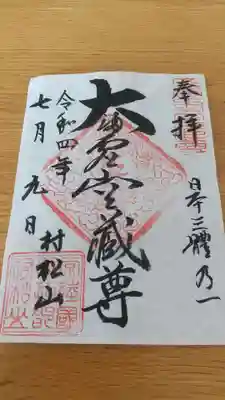 奉拝
日本三體乃一
大虚空蔵尊
村松山
令和四年
七月九日